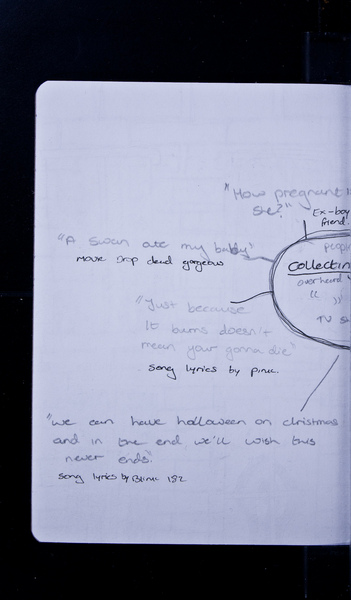 "How pregnant is
she?"
Ex-boy
friend
"A swan ate my baby"
Movie Drop dead gorgeous
people
Collectin
overheard
" "
TV s
"Just because
It burns doesn't
mean your gonna die"
Song lyrics by pink.
"We can have halloween on christmas
and in the end we'll wish this
never ends"
Song lyrics by Blink 182